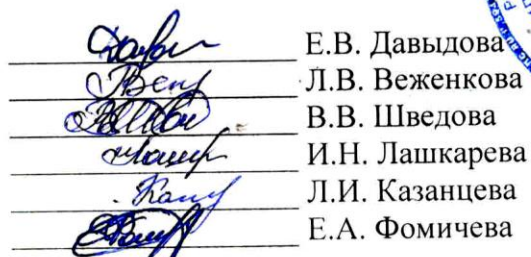 Е.В. Давыдова
Л.В. Веженкова
В.В. Шведова
И.Н. Лашкарева
Л.И. Казанцева
Е.А. Фомичева